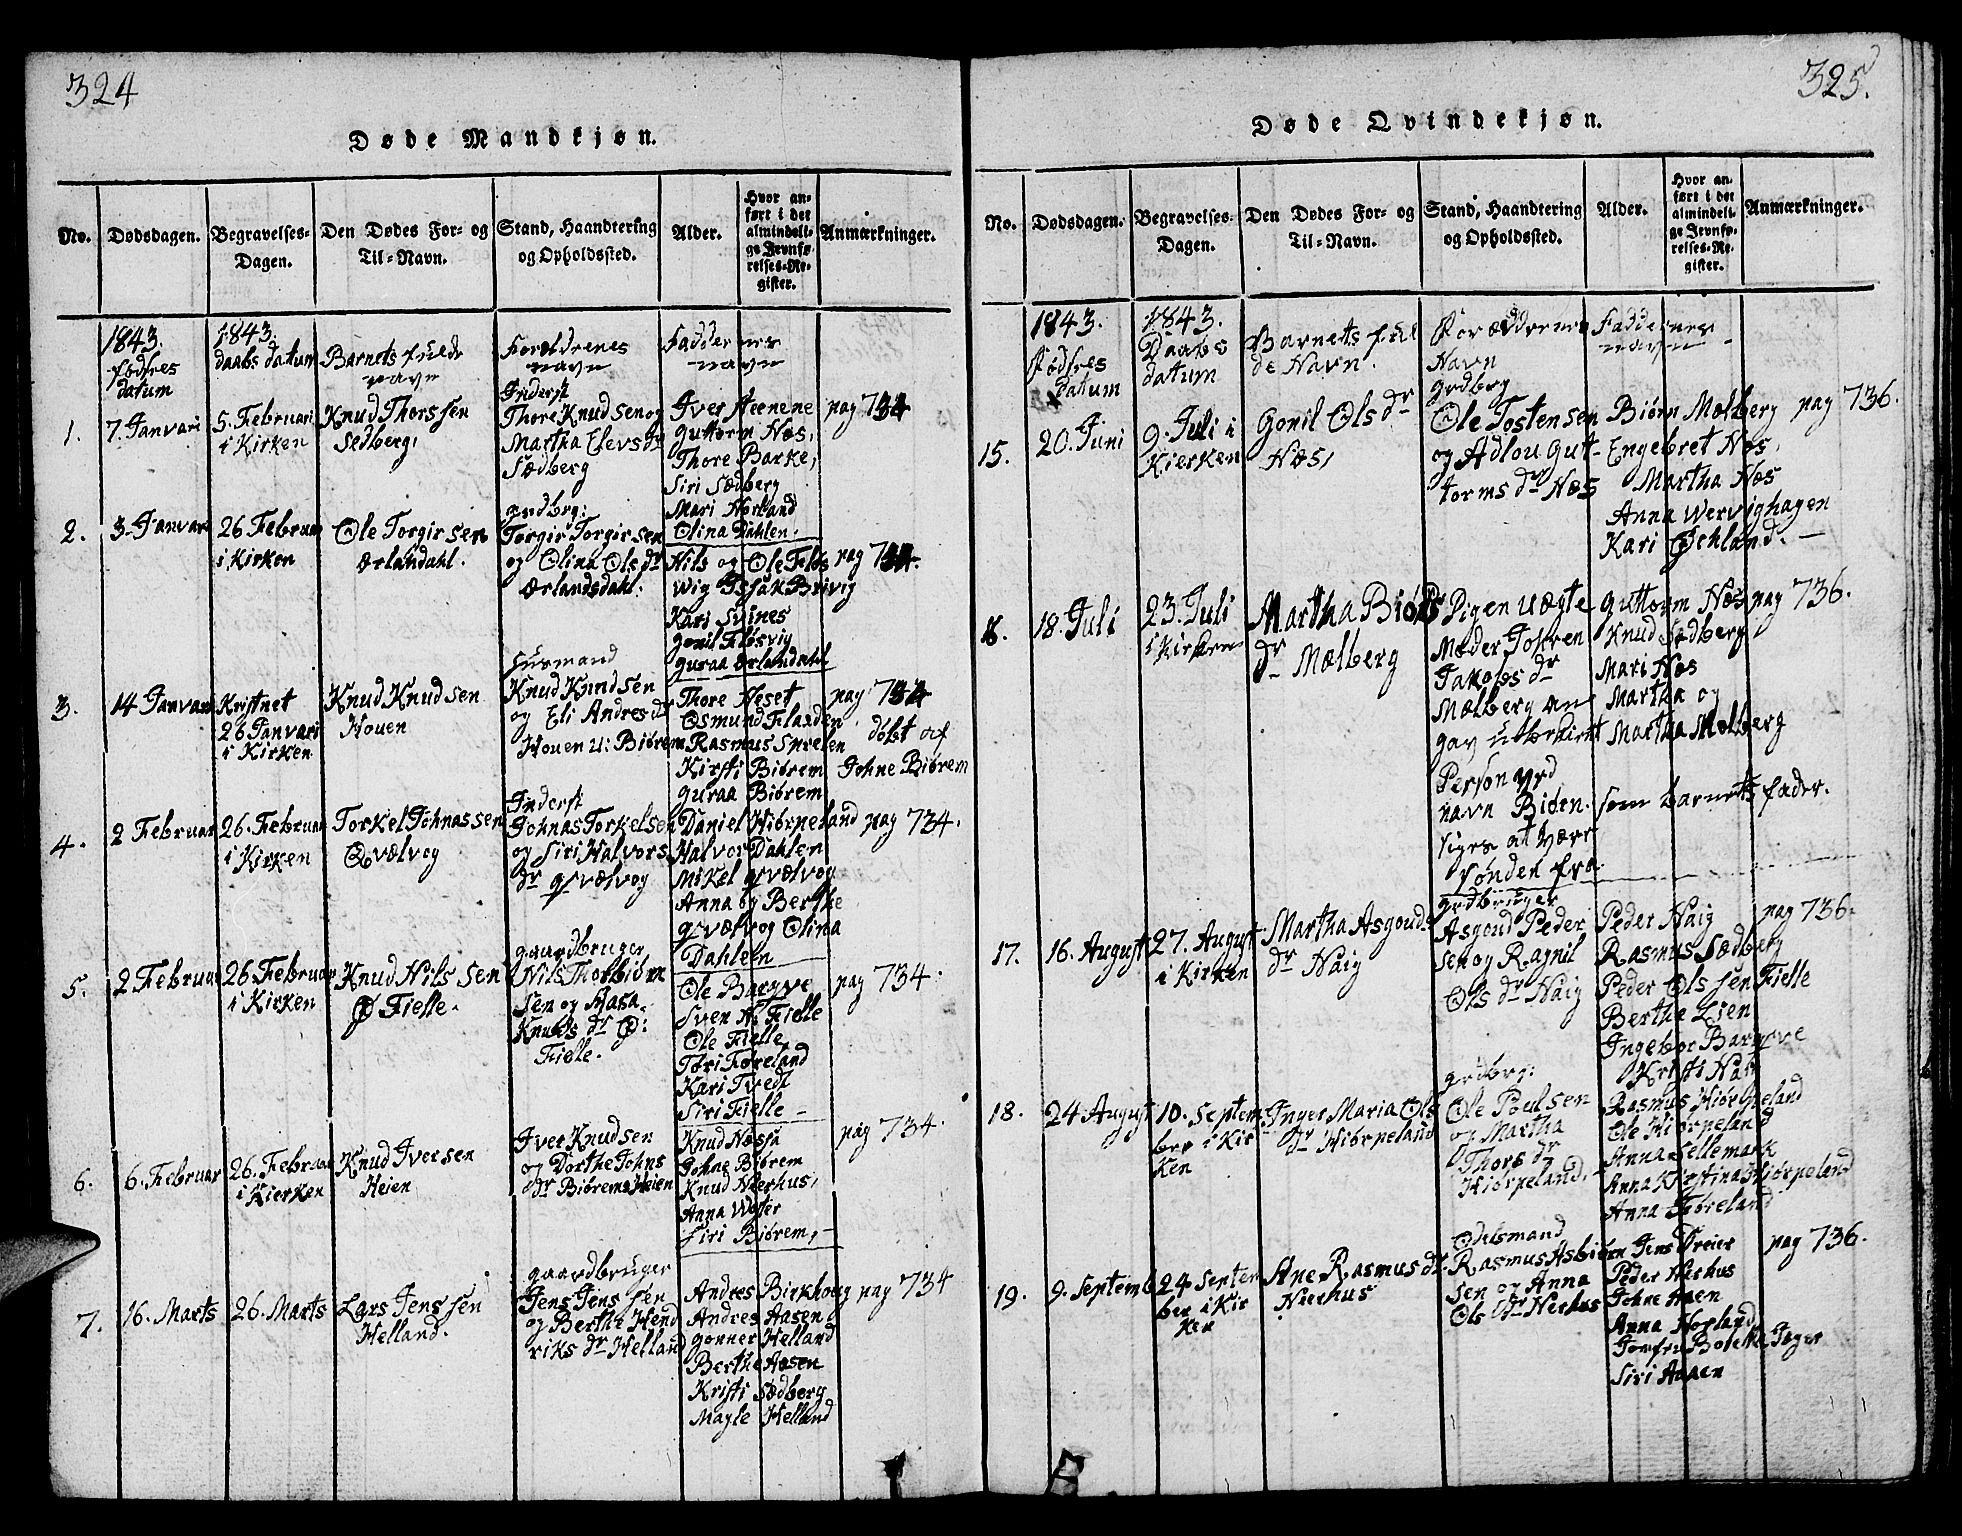 324
Døde Mandkjøn.
No.
Dødsdagen.
Begravelses-
Dagen.
Den Dødes For- og
Til-Navn.
Stand, Haandtering
og Opholdssted.
Alder.
Hvor an-
ført i det
almindeli-
ge Jevnfø-
relses-Re-
gister.
Anmærkninger.
1843.
fødsres
datum
1843.
daabs datum
Barnets fulde
navn
Foreldrenes
navn
Faddernes
navn
1.
7. Janvari
5. Februari
i Kirken
Knud Thorssen
Sedberg.
Inderst
Thore Knudsen og
Martha Elevs dr
Sædberg
Iver Heenene
Guttorm Næs,
Thore Barke,
Siri Sædberg
Mari Hørland
Olina Dahlen.
pag 734
2.
3. Janvari
26 Februar
i Kirken
Ole Torgirsen
Ørlandahl.
grdbrg:
Torgir Torgirsen
og Olina Ols dr
Ørlandsdahl:
Nils og Ole Fløs
wig Issak Brivig
Kari Svines
Gonil Fløsvig
Guraa Ørlandahl
pag 734
3.
14 Janvari
Kristnet
26 Janvari
i Kirken
Knud Knudsen
Houen
Husmand
Knud Knudsen
og Eli Andres dr
Houen u: Biørem
Thore Heset
Osmund Flaaden
Rasmus Sprelen
Kirsti Biørem
Guraa Biørem
pag 734
døbt af
Johne Biørem
4.
2 Februar
26. Februar
i Kirken
Torkel Johnassen
Qvælvog
Inderst
Johnas Torkelsen
og Siri Halvors
dr Qvælvog
Daniel Hiørpeland
Halvor Dahlen
Mikel Qvælvog
Anna og Berthe
Qvælvog Olina
Dahlen
pag 734.
5.
2 Februar
26 Februar
i Kirken
Knud Nilssen
Ø Fielle.
gaardbruger
Nils Thorbiørn
sen og Aasa
Knuds dr Ø:
Fielle.
Ole Bargve
Sven H. Fielle
Ole Fielle
Tøri Føreland
Kari Tvedt
Siri Fielle
pag 734.
6.
6. Februar
26. Februar
i Kierken
Knud Iversen
Heien
Iver Knudsen
og Dorthe Johns
dr Biørems Heien
Knud Næssa
Johne Biørem
Knud Nærhus,
Anna Woster
Siri Biørem,
pag 734.
7.
16. Marts
26. Marts
Lars Jenssen
Helland.
gaardbruger
Jens Jenssen
og Berthe Hend
riks dr Helland
Andres Birkborg
Andres Aasen
Gonner Helland
Berthe Aasen
Kristi Sædberg
Magle Helland
pag 734
325.
Døde Qvindekjøn.
No.
Dødsdagen.
Begravelses-
Dagen.
Den Dødes For- og
Til-Navn.
Stand, Haandtering
og Opholdssted.
Alder.
Hvor an-
ført i det
almindeli-
ge Jevnfø-
relses-Re-
gister.
Anmærkninger.
1843.
Fødsres
datum
1843.
Daabs
datum
Barnets ful
de Navn.
Forældrenes
Navn
Faddernes
navn
15.
20. Juni
9. Juli i
Kierken
Gonil Ols dr
Næs,
grdbrg
Ole Tostensen
og Adlou Gut-
torms dr Næs
Biørn Mælberg
Engebret Næs,
Martha Næs
Anna Wervighagen
Kari Øchland.
pag 736.
16.
18. Juli
23. Juli
i Kirken
Martha Biørns
dr Mælberg
Pigen uægte
Moder Johren
Jakobs dr
Mælberg an
gav ubekint
Person vrd
navn Biørn.
siges at være
sønden fra.
Guttorm Næs
Knud Sædberg
Mari Næs
Martha og
Martha Mælberg
som barnets fader.
pag 736.
17.
16. August
27. August
i Kirken
Martha Asgouds
dr Naig
grdbruger
Asgoud Peder
sen og Ragnil
Ols dr Naig
Peder Naig
Rasmus Sædberg
Peder Olssen Fielle
Berthe Lien
Ingebor Bargve
Kristi Naig
pag 736.
18.
24 August
10. Septem
ber i Kir
ken
Inger Maria Ols
dr Hiørpeland
grdbrg:
Ole Poulsen
og Martha
Thors dr
Hiørpeland.
Rasmus Hiørpeland
Ole Hiørpeland
Anna Sellemark
Anna Kristina Hiørpeland
Anna Føreland
19.
9. Septemb
24 Septem
ber i Kir
ken
Ane Rasmus dr
Nierhus
Odelsmand
Rasmus Asbiørn
sen og Anna
Ols dr Nerhus
Jens Dreier
Peder Nerhus
Johne Aaen
Anna Hopland
Jomfru Bolette Jager
Siri Aaaen
pag 736.